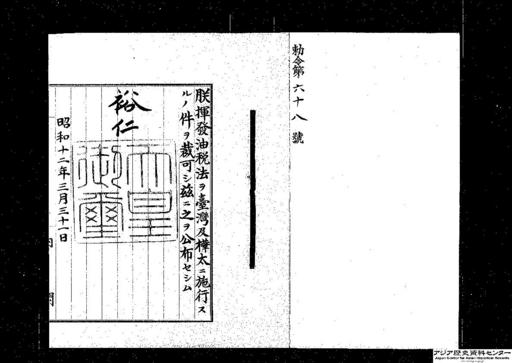 勅令第六十八號
朕揮發油税法ヲ臺灣及樺太ニ施行ス
ルノ件ヲ裁可シ茲ニ之ヲ公布セシム
裕仁
天皇御璽
昭和十二年三月三十一日
アジア歴史資料センター
Japan Center for Asian Historical Records